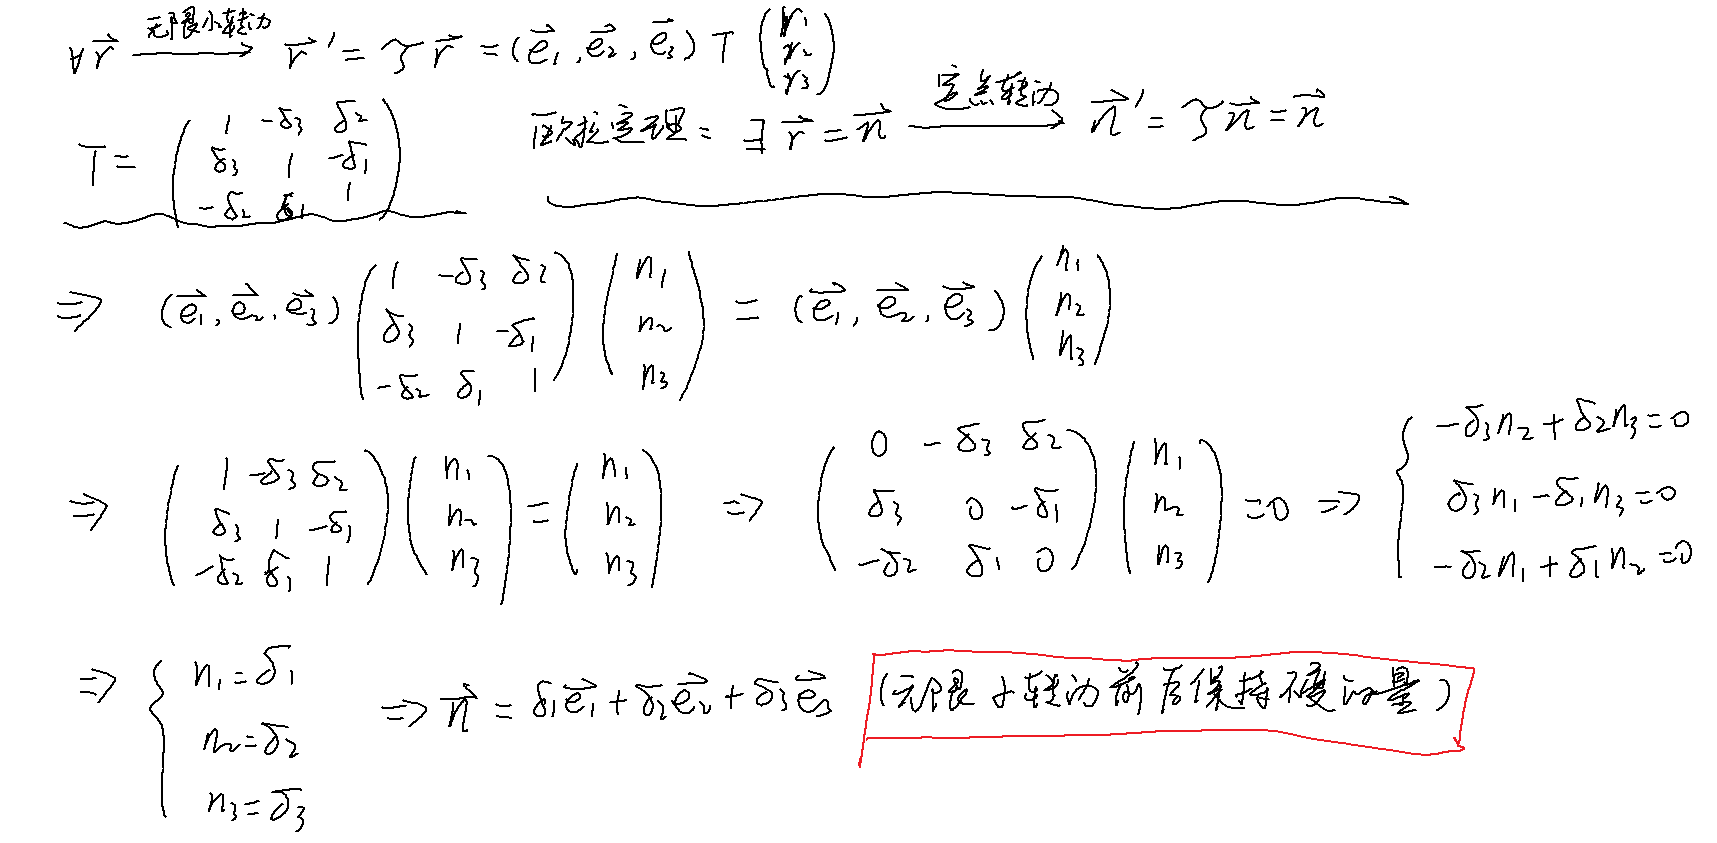 ∀r⃗ —无限小转动→ r⃗' = 𝒯r⃗ = (e⃗₁, e⃗₂, e⃗₃) T (r₁ r₂ r₃)
T = (1 -δ₃ δ₂
δ₃ 1 -δ₁
-δ₂ δ₁ 1)
欧拉定理: ∃ r⃗ = n⃗ —定点转动→ n⃗' = 𝒯n⃗ = n⃗
⇒ (e⃗₁, e⃗₂, e⃗₃) (1 -δ₃ δ₂ / δ₃ 1 -δ₁ / -δ₂ δ₁ 1) (n₁ n₂ n₃) = (e⃗₁, e⃗₂, e⃗₃) (n₁ n₂ n₃)
⇒ (1 -δ₃ δ₂ / δ₃ 1 -δ₁ / -δ₂ δ₁ 1) (n₁ n₂ n₃) = (n₁ n₂ n₃) ⇒ (0 -δ₃ δ₂ / δ₃ 0 -δ₁ / -δ₂ δ₁ 0) (n₁ n₂ n₃) = 0 ⇒ { -δ₃n₂ + δ₂n₃ = 0
δ₃n₁ - δ₁n₃ = 0
-δ₂n₁ + δ₁n₂ = 0
⇒ { n₁ = δ₁
n₂ = δ₂
n₃ = δ₃
⇒ n⃗ = δ₁e⃗₁ + δ₂e⃗₂ + δ₃e⃗₃ (无限小转动前后保持不变的量)